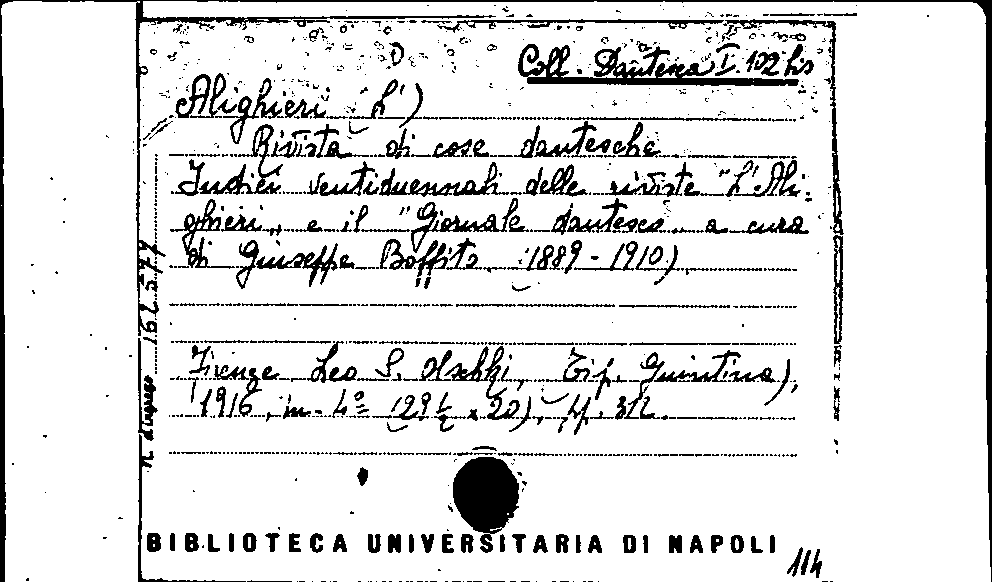 Coll. Dantesca I. 102 bis
Alighieri (L')
Rivista di cose dantesche
Indici ventiduennali delle riviste "L'Ali-
ghieri„ e il "Giornale dantesco„ a cura
di Giuseppe Boffito (1889-1910)
Firenze Leo S. Olschki, (Tip. Giuntina),
1916, in-4º (29½ x 20), pp. 312.
n. d'ingresso 162577
BIBLIOTECA UNIVERSITARIA DI NAPOLI
114